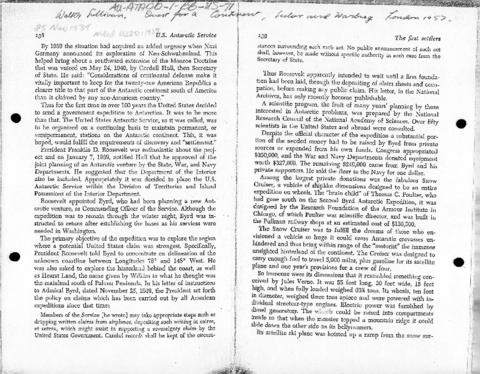 Walter Sullivan, Quest for a Continent, Secker and Warburg London 1957.
138
U.S. Antarctic Service
By 1939 the situation had acquired an added urgency when Nazi
Germany announced its exploration of Neu-Schwabenland. This
helped bring about a southward extension of the Monroe Doctrine
that was voiced on May 10, 1940, by Cordell Hull, then Secretary
of State. He said: "Considerations of continental defense make it
vitally important to keep for the twenty-one American Republics a
clearer title to that part of the Antarctic continent south of America
than is claimed by any non-American country."
Thus for the first time in over 100 years the United States decided
to send a government expedition to Antarctica. It was to be more
than that. The United States Antarctic Service, as it was called, was
to be organized on a continuing basis to maintain permanent, or
semipermanent, stations on the Antarctic continent. This, it was
hoped, would fulfill the requirements of discovery and "settlement."
President Franklin D. Roosevelt was enthusiastic about the proj-
ect and on January 7, 1939, notified Hull that he approved of the
joint planning of an Antarctic venture by the State, War, and Navy
Departments. He suggested that the Department of the Interior
also be included. Appropriately it was decided to place the U.S.
Antarctic Service within the Division of Territories and Island
Possessions of the Interior Department.
Roosevelt appointed Byrd, who had been planning a new Ant-
arctic venture, as Commanding Officer of the Service. Although the
expedition was to remain through the winter night, Byrd was in-
structed to return after establishing the bases as his services were
needed in Washington.
The primary objective of the expedition was to explore the region
where a potential United States claim was strongest. Specifically,
President Roosevelt told Byrd to concentrate on delineation of the
unknown coastline between Longitudes 78° and 148° West. He
was also asked to explore the hinterland behind the coast, as well
as Hearst Land, the name given by Wilkins to what he thought was
the mainland south of Palmer Peninsula. In his letter of instructions
to Admiral Byrd, dated November 25, 1939, the President set forth
the policy on claims which has been carried out by all American
expeditions since that time:
Members of the Service [he wrote] may take appropriate steps such as
dropping written claims from airplanes, depositing such writing in cairns,
et cetera, which might assist in supporting a sovereignty claim by the
United States Government. Careful record shall be kept of the circum-
The first settlers
stances surrounding each such act. No public announcement of such act
shall, however, be made without specific authority in each case from the
Secretary of State.
Thus Roosevelt apparently intended to wait until a firm founda-
tion had been laid, through the depositing of claim sheets and occu-
pation, before making any public claim. His letter, in the National
Archives, has only recently become publishable.
A scientific program, the fruit of many years' planning by those
interested in Antarctic problems, was prepared by the National
Research Council of the National Academy of Sciences. Over fifty
scientists in the United States and abroad were consulted.
Despite the official character of the expedition a substantial por-
tion of the needed money had to be raised by Byrd from private
sources or expended from his own funds. Congress appropriated
$350,000, and the War and Navy Departments donated equipment
worth $327,000. The remaining $240,000 came from Byrd and his
private supporters. He sold the Bear to the Navy for one dollar.
Among the largest private donations was the fabulous Snow
Cruiser, a vehicle of shiplike dimensions designed to be an entire
expedition on wheels. The "brain child" of Thomas C. Poulter, who
had gone south on the Second Byrd Antarctic Expedition, it was
designed by the Research Foundation of the Armour Institute in
Chicago, of which Poulter was scientific director, and was built in
the Pullman railway shops at an estimated cost of $150,000.
The Snow Cruiser was to fulfill the dreams of those who en-
visioned a vehicle so huge it could cross Antarctic crevasses un-
hindered and thus bring within range of the "motorist" the immense
unsighted hinterland of the continent. The Cruiser was designed to
carry enough fuel to travel 5,000 miles, plus gasoline for its satellite
plane and one year's provisions for a crew of four.
So immense were its dimensions that it resembled something con-
ceived by Jules Verne. It was 55 feet long, 20 feet wide, 15 feet
high, and when fully loaded weighed 33½ tons. Its wheels, ten feet
in diameter, weighed three tons apiece and were powered with in-
dividual streetcar-type engines. Electric power was furnished by
diesel generators. The wheels could be raised into compartments
inside so that when the monster topped a mountain ridge it could
slide down the other side on its bellyrunners.
Its satellite ski plane was hoisted up a ramp from the snow sur-